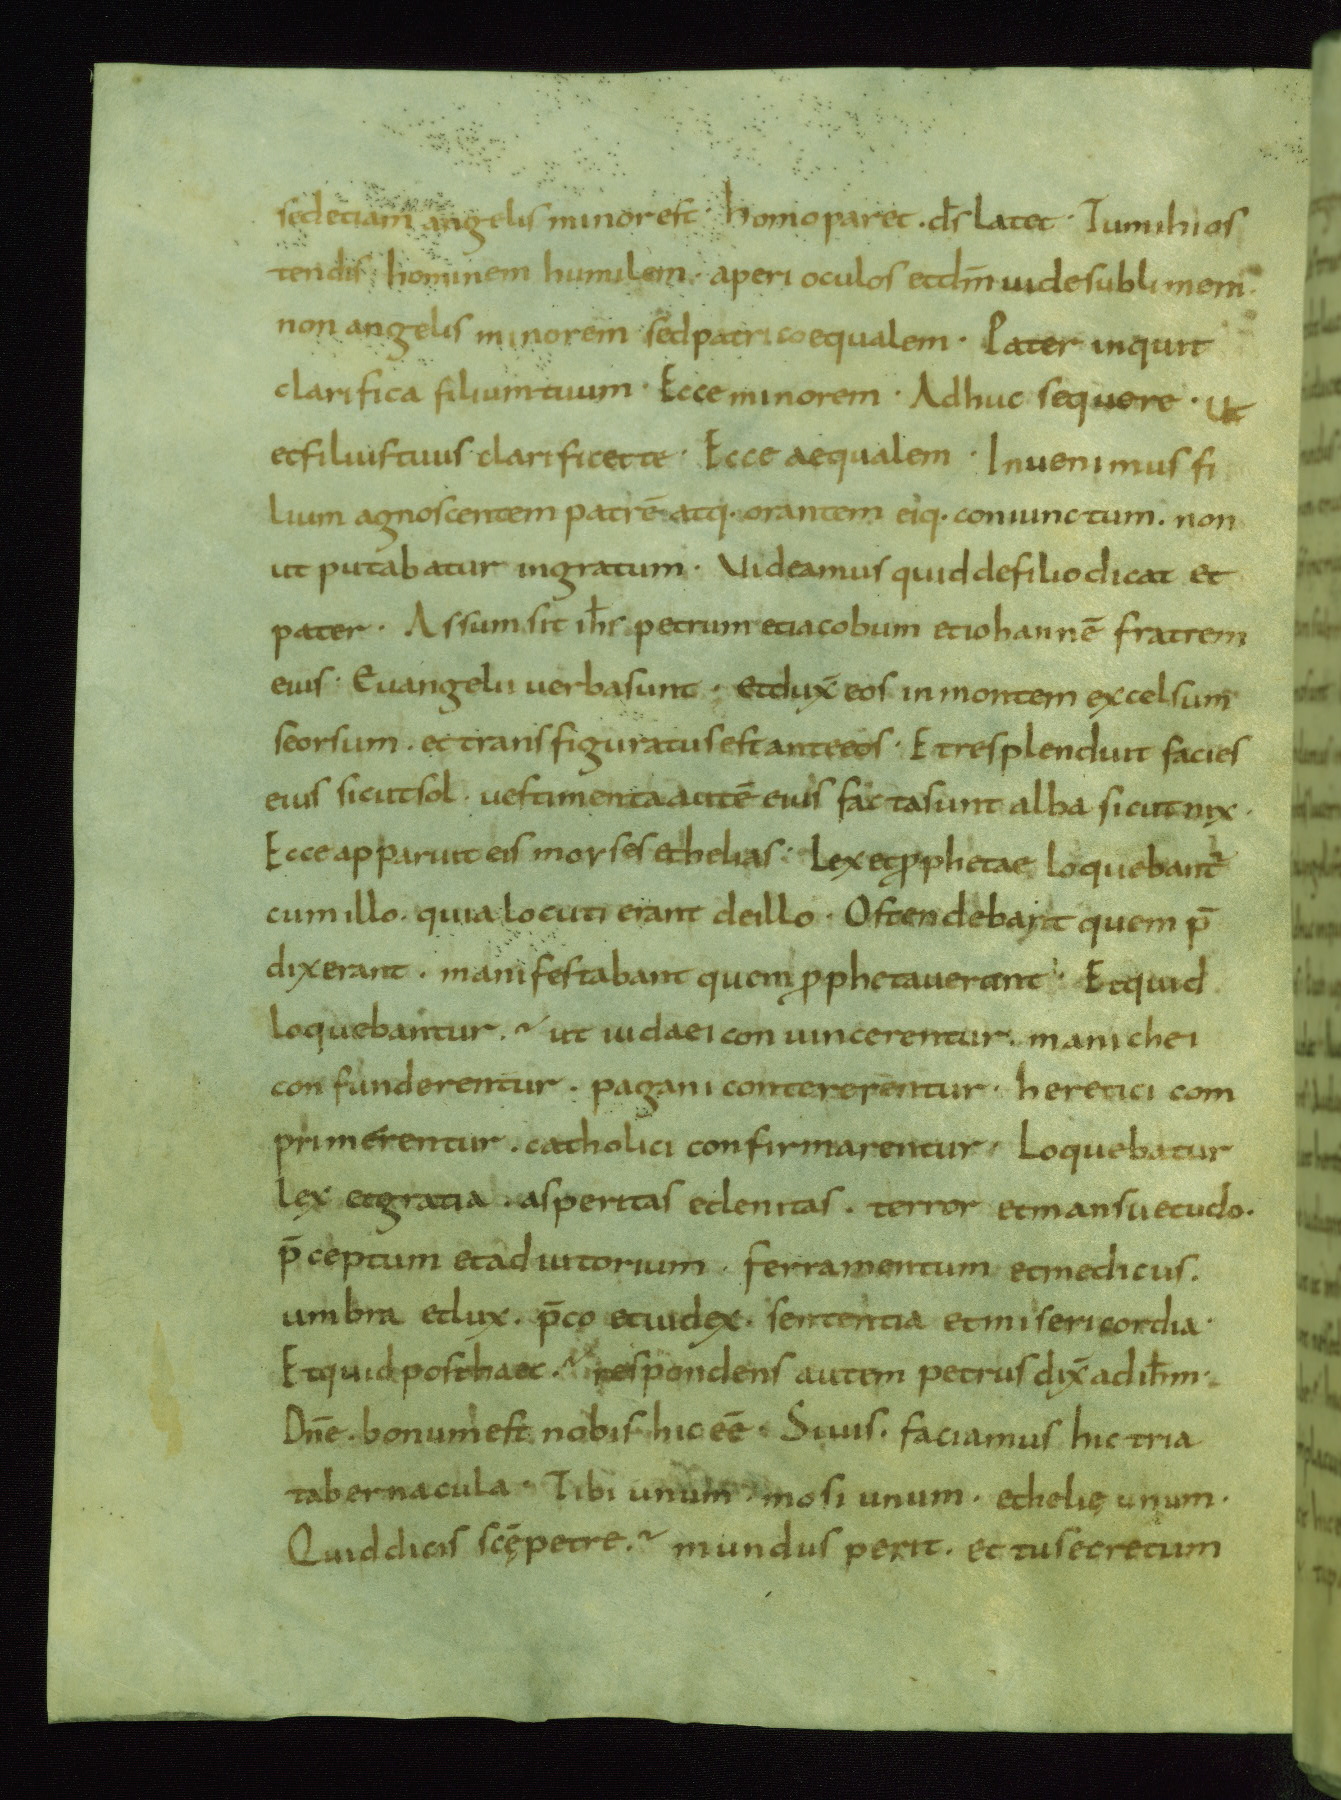 sed etiam angelis minor est · homo paret . d̅s latet · Tu mihi os
tendis hominem humilem · aperi oculos et dm̅ uide sublimem ·
non angelis minorem sed patri coequalem · Pater inquit
clarifica filium tuum · Ecce minorem · Adhuc sequere · ut
et filius tuus clarificet te · Ecce aequalem · Inuenimus fi
lium agnoscentem patrē atq · orantem eiq · coniunctum . non
ut putabatur ingratum · Uideamus quid de filio dicat et
pater · Assumsit ih̅s petrum et iacobum et iohannē fratrem
eius · Euangelii uerba sunt · et dux̅ eos in montem excelsum
seorsum . et transfiguratus est ante eos · Et resplenduit facies
eius sicut sol · uestimenta autē eius facta sunt alba sicut nix ·
Ecce apparuit eis moyses et helias · Lex et ꝓphetae loquebant̅
cum illo . quia locuti erant de illo · Ostendebant quem p̅
dixerant . manifestabant quem ꝓphetauerant · Et quid
loquebantur .~ ut iudaei conuincerentur . manichei
confunderentur . pagani contererentur · heretici com
primerentur . catholici confirmarentur · Loquebatur
lex et gratia . asperitas et lenitas . terror et mansuetudo .
p̅ceptum et adiutorium . ferramentum et medicus .
umbra et lux . p̅co et iudex . sententia et misericordia ·
Et quid post haec .~ respondens autem petrus dix̅ ad ih̅m ·
Dn̅e . bonum est nobis hic eē · Si uis . faciamus hic tria
tabernacula · Tibi unum . mosi unum . et helię unum .
Quid dicis scē petre .~ mundus perit . et tu secretum